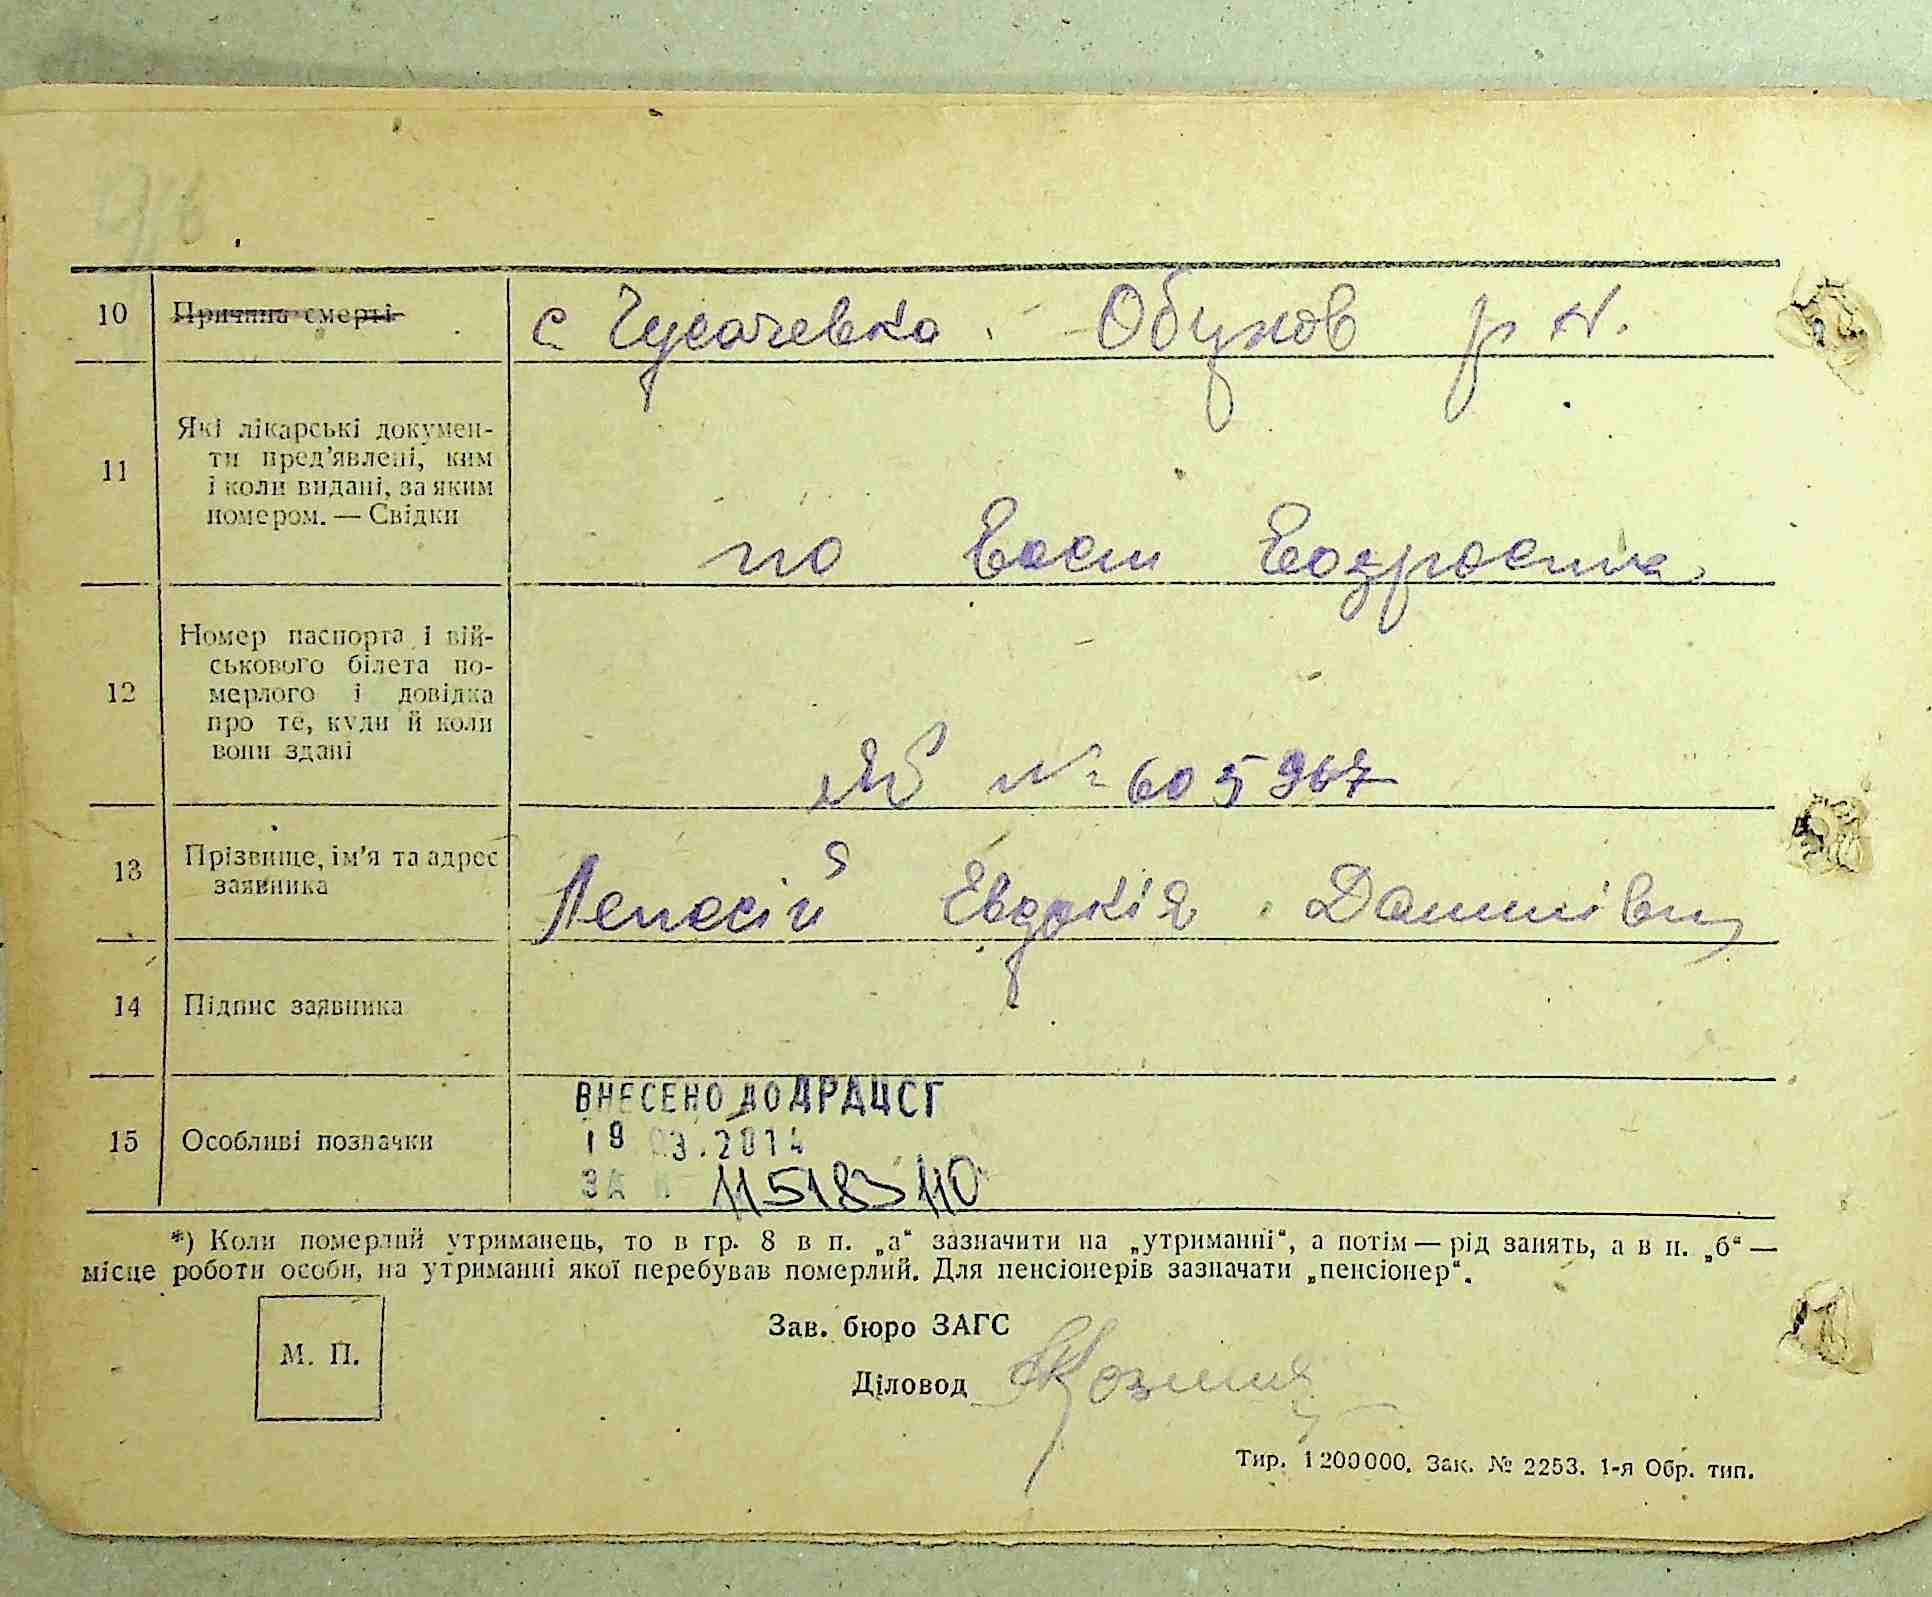 10 Причина смерті с Гусачевка Обухов р н.
11 Які лікарські докумен-
ти пред'явлені, ким
і коли видані, за яким
номером. — Свідки
по восст возраста
12 Номер паспорта і вій-
ськового білета по-
мерлого і довідка
про те, куди й коли
вони здані
№ 605967
13 Прізвище, ім'я та адрес
заявника
Евдокія
14 Підпис заявника
ВНЕСЕНО ДО ДРАЦСГ
15 Особливі позначки
19 03.2014
ЗА № 115183110
*) Коли померлий утриманець, то в гр. 8 в п. „а“ зазначити на „утриманні“, а потім — рід занять, а в п. „б“ —
місце роботи особи, на утриманні якої перебував померлий. Для пенсіонерів зазначати „пенсіонер“.
Зав. бюро ЗАГС
М. П.
Діловод
Тир. 1200000. Зак. № 2253. 1-я Обр. тип.